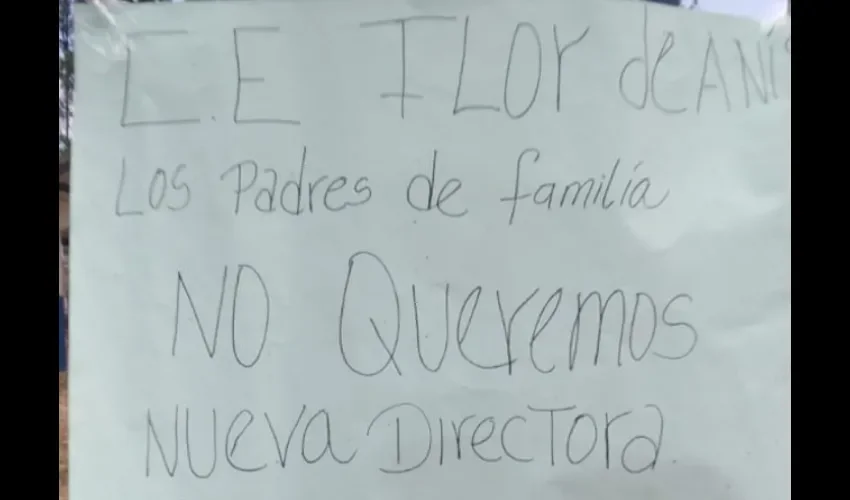 C.E FLOR de ANÍS
Los Padres de familia
NO Queremos
NUeva DirecTora.